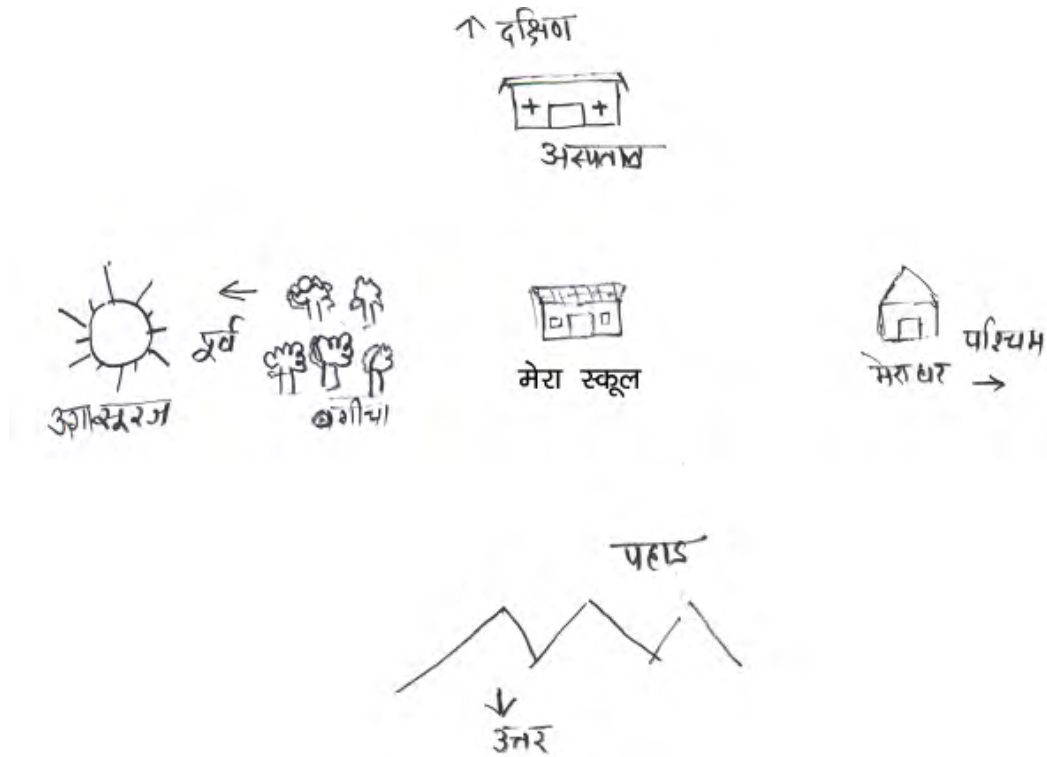 ↑ दक्षिण
अस्पताल
पूर्व
उगा सूरज
बगीचा
मेरा स्कूल
मेरा घर
पश्चिम
पहाड
उत्तर